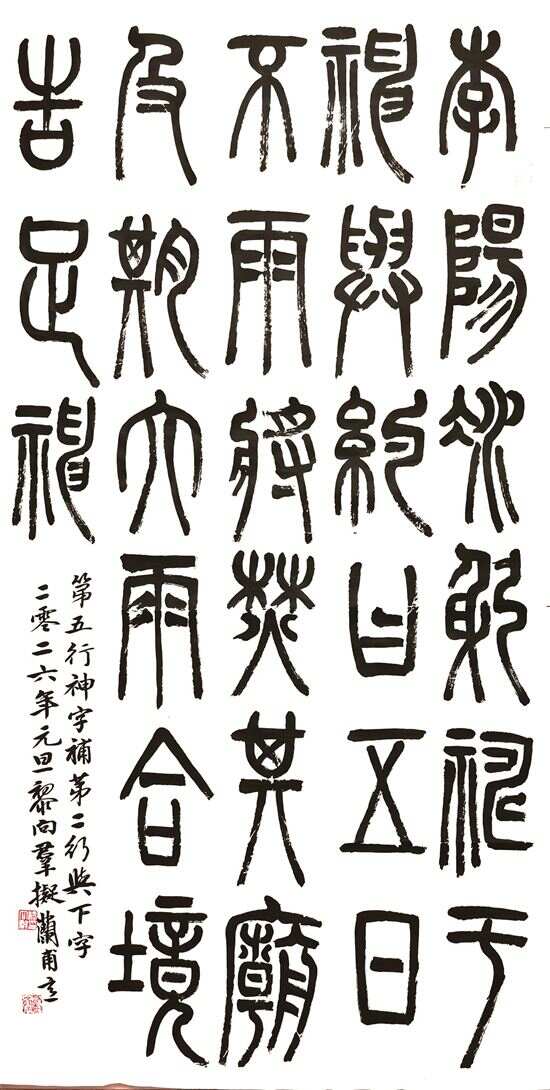 李陽冰躬祈于
神與約曰五日
不雨將焚其廟
及期大雨合境
告足神
第五行神字補第二行與下字
二零二六年元旦黎向羣擬蘭甫意